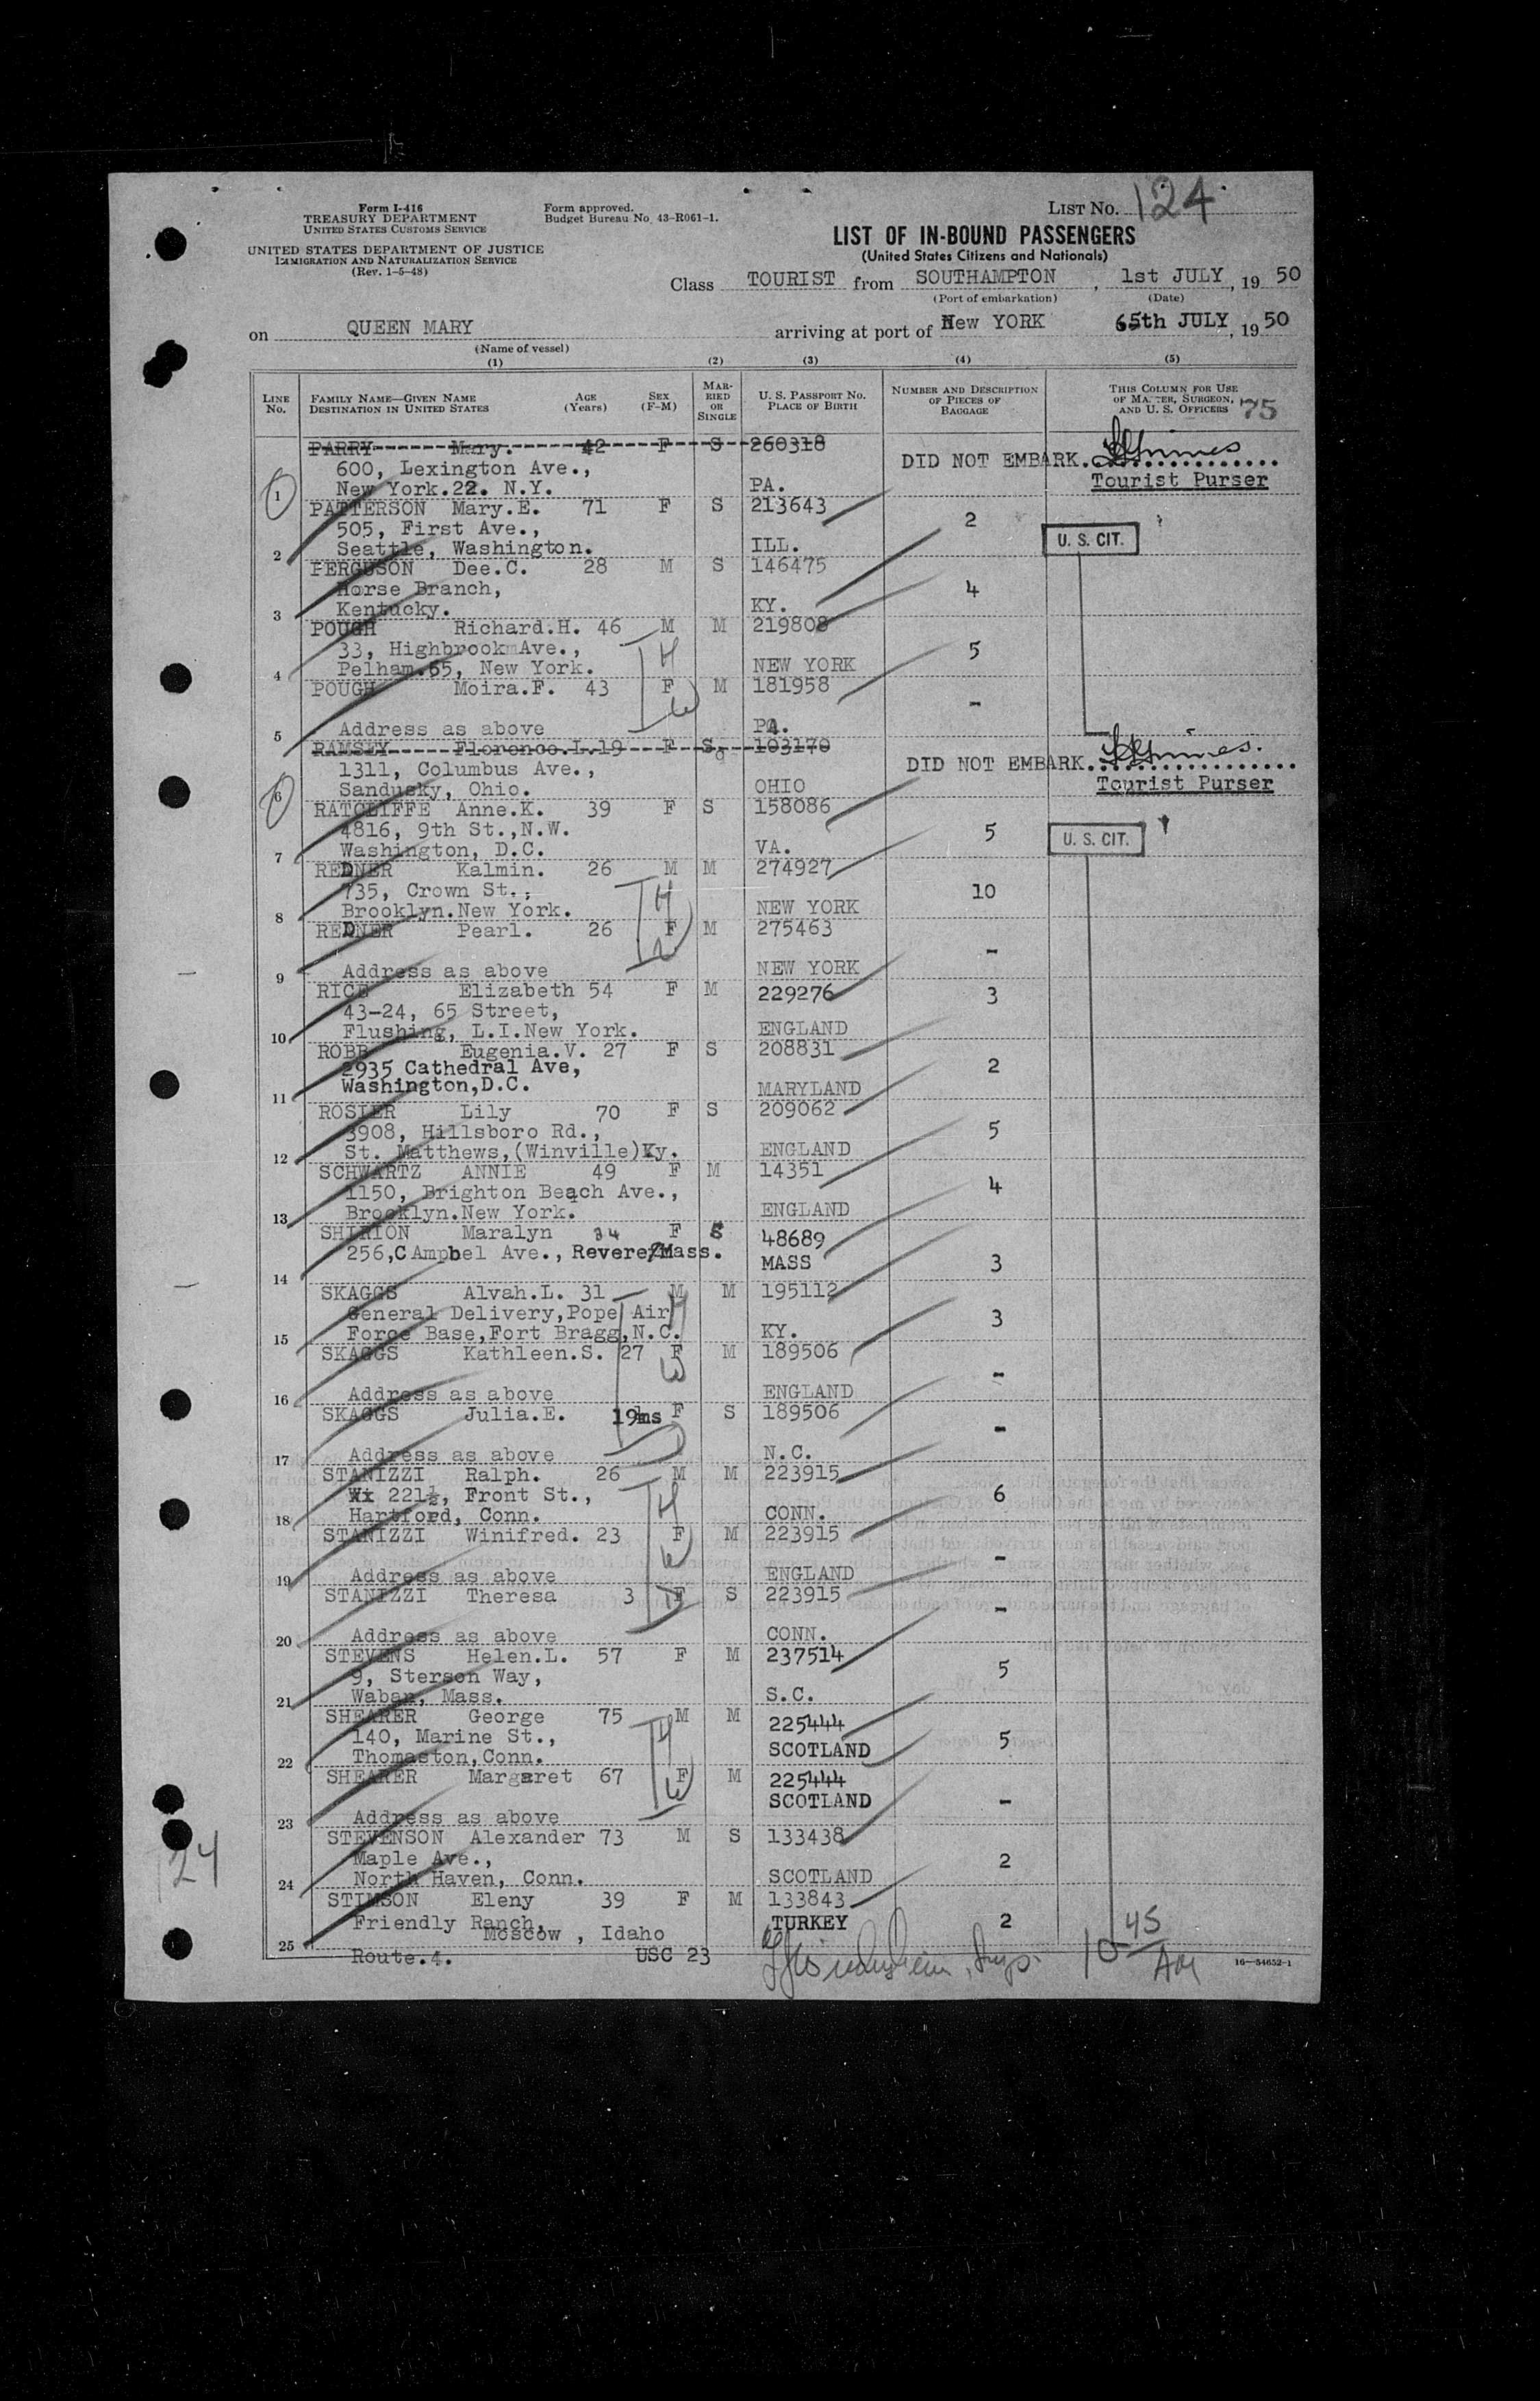 Form I-416
TREASURY DEPARTMENT
UNITED STATES CUSTOMS SERVICE
UNITED STATES DEPARTMENT OF JUSTICE
IMMIGRATION AND NATURALIZATION SERVICE
(Rev. 1-5-48)
Form approved.
Budget Bureau No. 43-R061-1.
LIST NO. 124
LIST OF IN-BOUND PASSENGERS
(United States Citizens and Nationals)
Class TOURIST from SOUTHAMPTON, 1st JULY, 19 50
(Port of embarkation) (Date)
on QUEEN MARY arriving at port of New YORK 65th JULY, 19 50
(Name of vessel)
(1) (2) (3) (4) (5)
LINE NO. FAMILY NAME—GIVEN NAME DESTINATION IN UNITED STATES AGE (Years) SEX (F-M) MARRIED OR SINGLE U. S. PASSPORT NO. PLACE OF BIRTH NUMBER AND DESCRIPTION OF PIECES OF BAGGAGE THIS COLUMN FOR USE OF MASTER, SURGEON, AND U. S. OFFICERS 75
PARRY Mary. 42 F S 260318
600, Lexington Ave., DID NOT EMBARK.
1 New York.22. N.Y. PA. Tourist Purser
PATTERSON Mary.E. 71 F S 213643
505, First Ave., 2
2 Seattle, Washington. ILL. U. S. CIT.
FERGUSON Dee.C. 28 M S 146475
Horse Branch, 4
3 Kentucky. KY.
POUGH Richard.H. 46 M M 219808
33, HighbrookmAve., H 5
4 Pelham.65, New York. NEW YORK
POUGH Moira.F. 43 F M 181958
W -
5 Address as above PA.
RAMSEY Florence.L. 19 F S 103170
1311, Columbus Ave., DID NOT EMBARK.
6 Sandusky, Ohio. OHIO Tourist Purser
RATCLIFFE Anne.K. 39 F S 158086
4816, 9th St.,N.W. 5
7 Washington, D.C. VA. U. S. CIT.
REDNER Kalmin. 26 M M 274927
735, Crown St., H 10
8 Brooklyn.New York. NEW YORK
REDNER Pearl. 26 F M 275463
W -
9 Address as above NEW YORK
RICE Elizabeth 54 F M 229276 3
43-24, 65 Street,
10 Flushing, L.I.New York. ENGLAND
ROBB Eugenia.V. 27 F S 208831
2935 Cathedral Ave, 2
11 Washington,D.C. MARYLAND
ROSIER Lily 70 F S 209062
3908, Hillsboro Rd., 5
12 St. Matthews,(Winville)Ky. ENGLAND
SCHWARTZ ANNIE 49 F M 14351
1150, Brighton Beach Ave., 4
13 Brooklyn.New York. ENGLAND
SHIRION Maralyn 34 F S 48689
256,CAmpbel Ave., Revere,Mass. MASS 3
14
SKAGGS Alvah.L. 31 M M 195112
General Delivery,Pope Air H 3
15 Force Base,Fort Bragg,N.C. KY.
SKAGGS Kathleen.S. 27 F M 189506
W -
16 Address as above ENGLAND
SKAGGS Julia.E. 19ms F S 189506
D -
17 Address as above N.C.
STANIZZI Ralph. 26 M M 223915
221½, Front St., H 6
18 Hartford, Conn. CONN.
STANIZZI Winifred. 23 F M 223915
W -
19 Address as above ENGLAND
STANIZZI Theresa 3 F S 223915
D -
20 Address as above CONN.
STEVENS Helen.L. 57 F M 237514
9, Sterson Way, 5
21 Waban, Mass. S.C.
SHEARER George 75 M M 225444
140, Marine St., H 5
22 Thomaston,Conn. SCOTLAND
SHEARER Margaret 67 F M 225444
W SCOTLAND -
23 Address as above
STEVENSON Alexander 73 M S 133438
Maple Ave., 2
24 North Haven, Conn. SCOTLAND
STIMSON Eleny 39 F M 133843
Friendly Ranch, TURKEY 2
25 Moscow, Idaho
Route.4. USC 23 Insp. 10 45 AM 16—54652-1
124